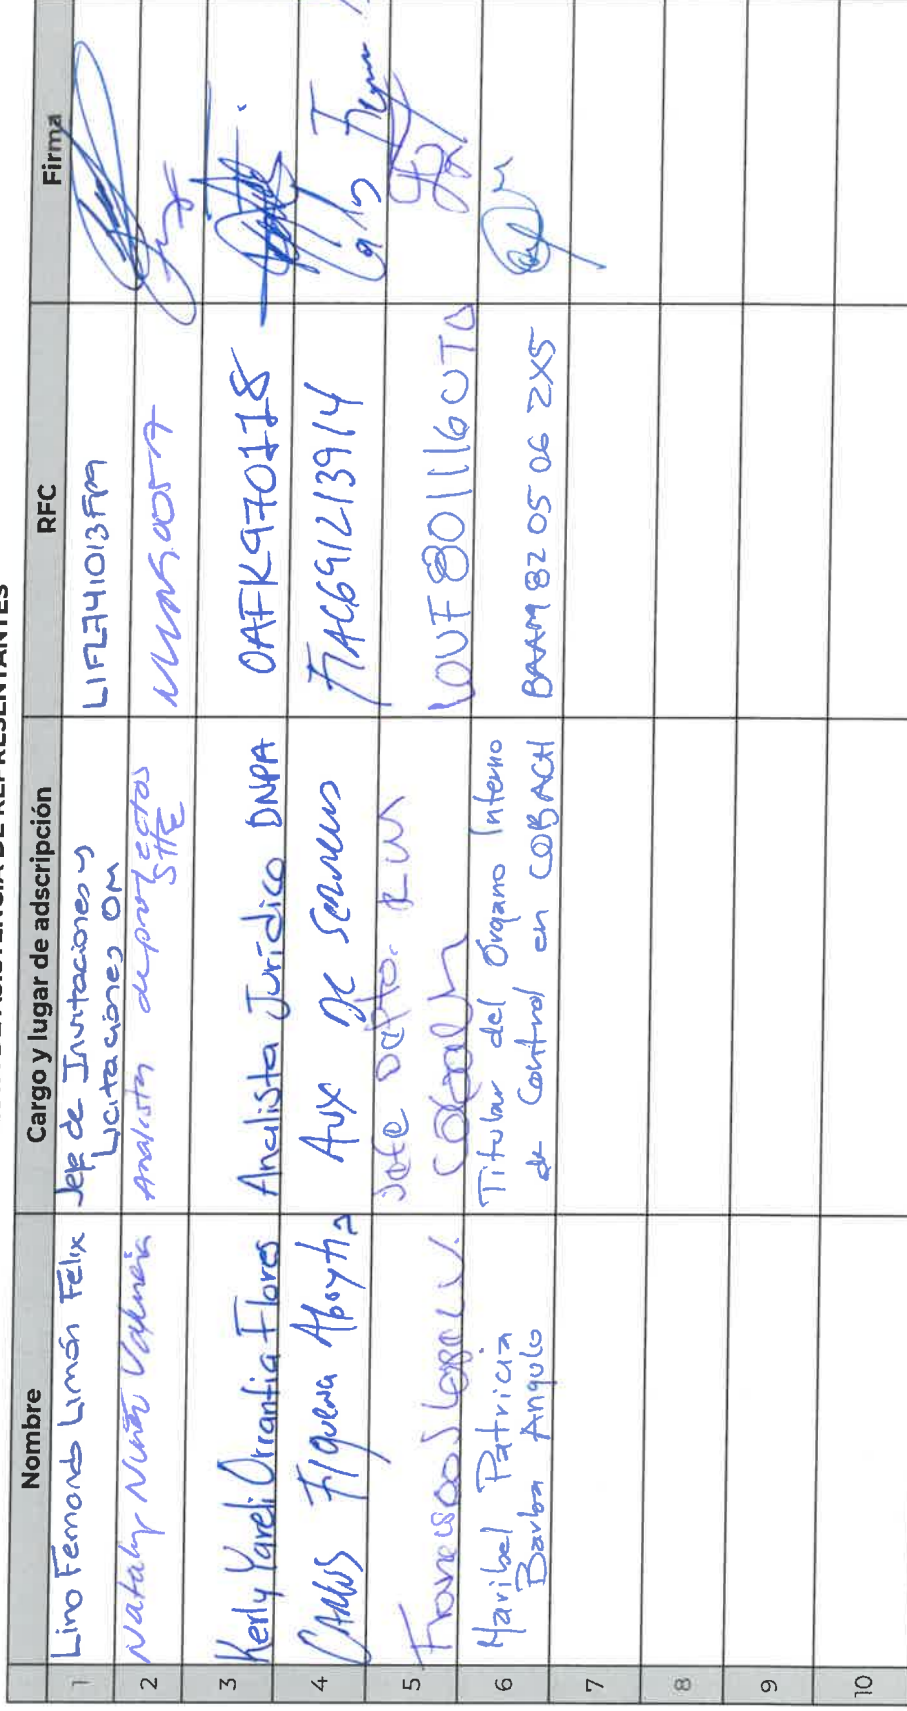 DE ASISTENCIA DE REPRESENTANTES
Nombre Cargo y lugar de adscripción RFC Firma
1 Lino Fernando Limón Félix Jefe de Invitaciones y Licitaciones OM LIFL741013
2 Nataly Nuñez Valencia Analista de proyectos STTE
3 Kerly Yareli Orrantia Flores Analista Jurídico DNPA OAFK970118
4 Carlos Figueroa Aboytia Aux De Servicios FIAC691213914 Carlos Figueroa
5 Francisco J López V. Jefe Depto. Cobach LOVF801116UT0
6 Maribel Patricia Barba Angulo Titular del Órgano Interno de Control en COBACH BAAM820506 2X5
7
8
9
10